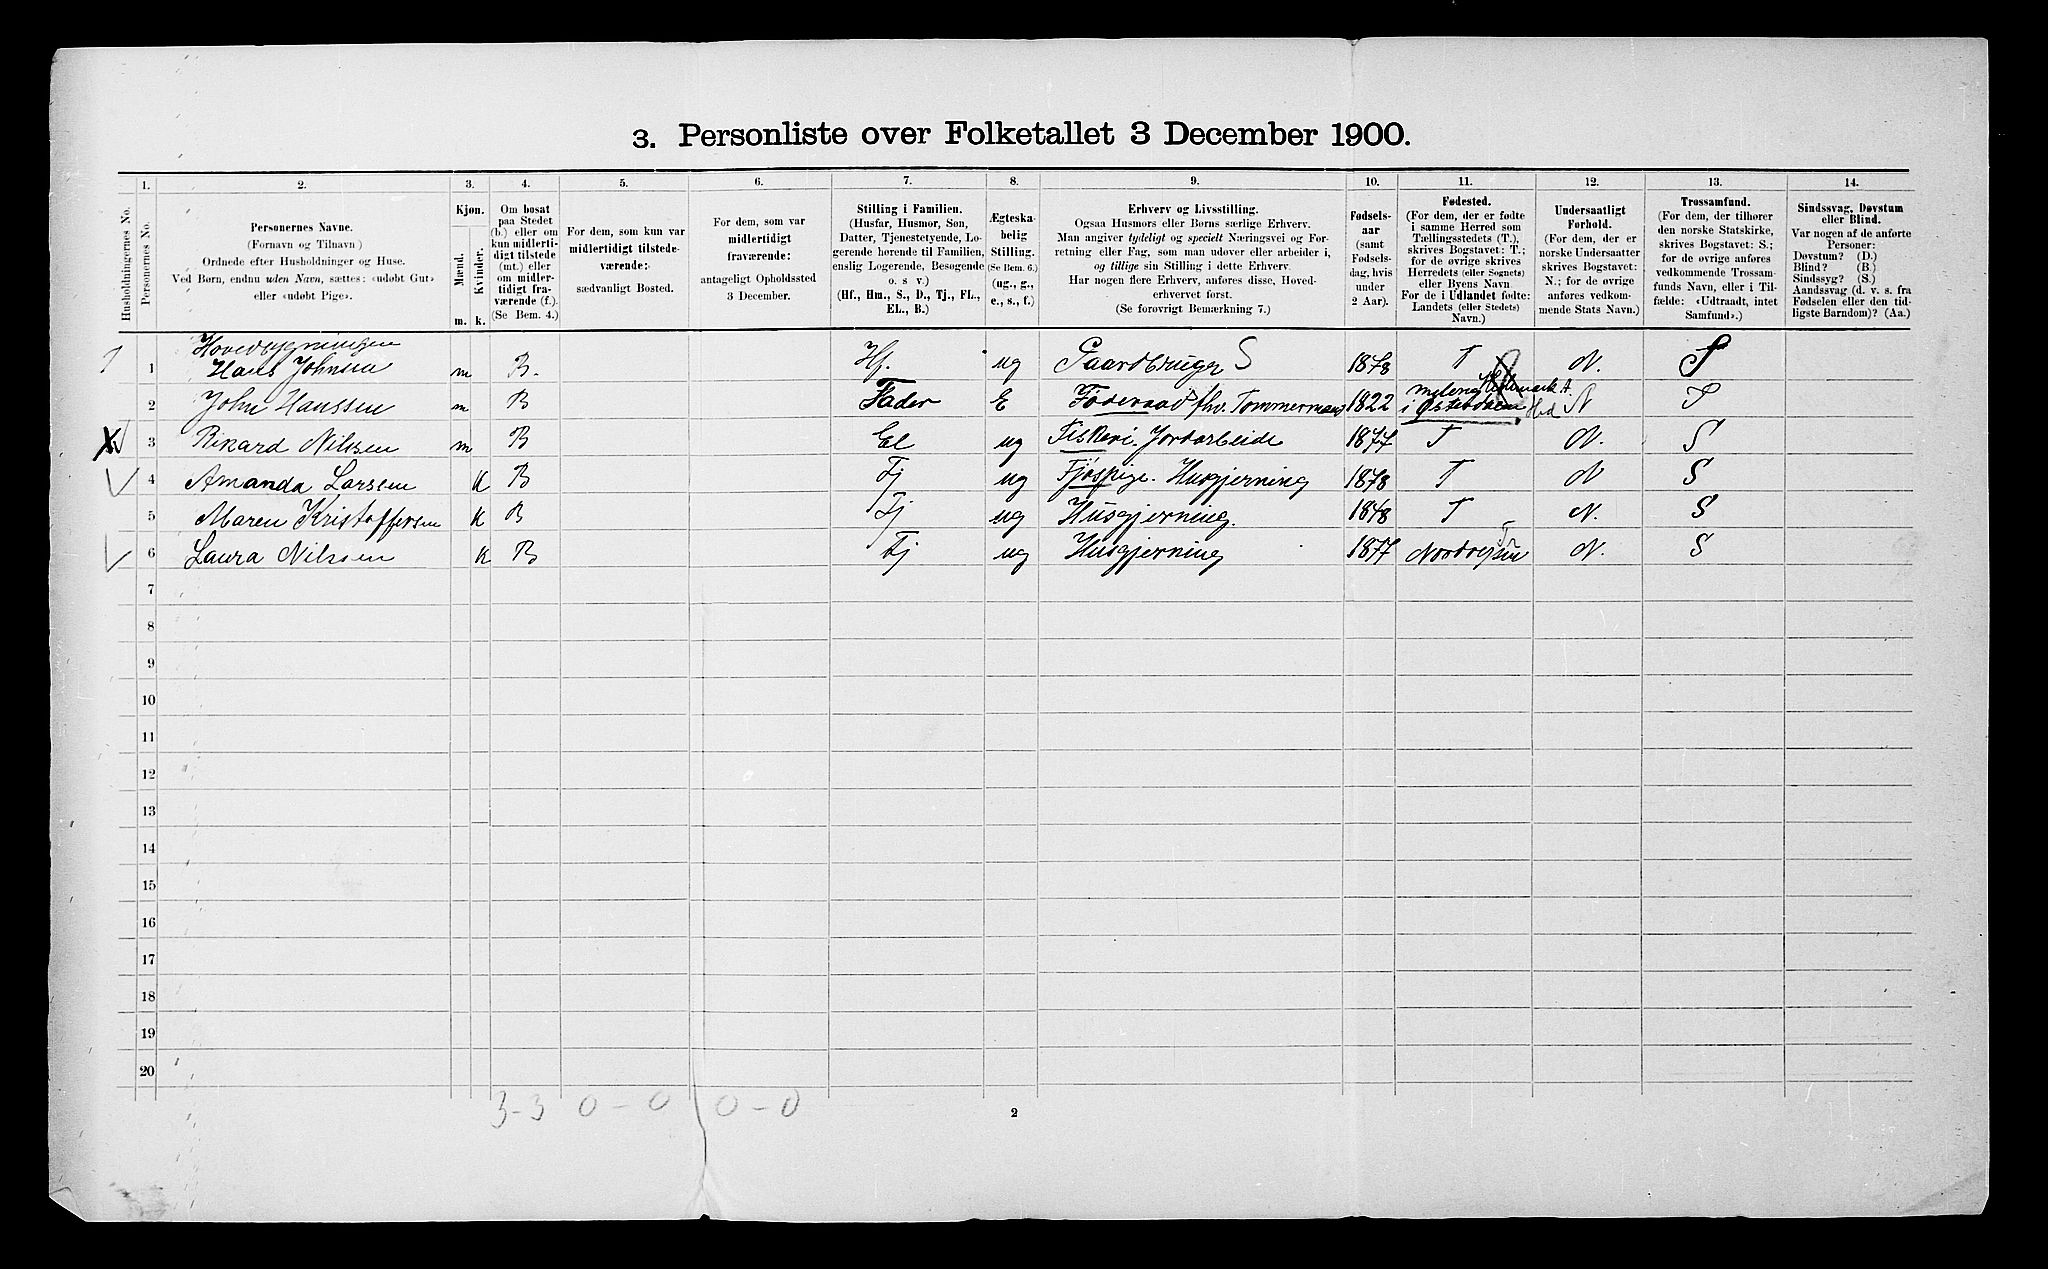 3. Personliste over Folketallet 3 December 1900.
Husholdningernes No.
1. Personernes No.
2. Personernes Navne.
(Fornavn og Tilnavn)
Ordnede efter Husholdninger og Huse.
Ved Børn, endnu uden Navn, sættes: «udøbt Gut»
eller «udøbt Pige».
3. Kjøn.
Mænd. m.
Kvinder. k.
4. Om bosat
paa Stedet
(b.) eller om
kun midlerti-
digt tilstede
(mt.) eller
om midler-
tidigt fra-
værende (f.).
(Se Bem. 4.)
5. For dem, som kun var
midlertidigt tilstede-
værende:
sædvanligt Bosted.
6. For dem, som var
midlertidigt
fraværende:
antageligt Opholdssted
3 December.
7. Stilling i Familien.
(Husfar, Husmor, Søn,
Datter, Tjenestetyende, Lo-
gerende hørende til Familien,
enslig Logerende, Besøgende
o. s v.)
(Hf., Hm., S., D., Tj., FL.,
EL., B.)
8. Ægteska-
belig
Stilling.
(Se Bem. 6.)
(ug., g.,
e., s., f.)
9. Erhverv og Livsstilling.
Ogsaa Husmors eller Børns særlige Erhverv.
Man angiver tydeligt og specielt Næringsvei og For-
retning eller Fag, som man udøver eller arbeider i,
og tillige sin Stilling i dette Erhverv.
Har nogen flere Erhverv, anføres disse, Hoved-
erhvervet først.
(Se forøvrigt Bemærkning 7.)
10. Fødsels-
aar
(samt
Fødsels-
dag, hvis
under
2 Aar).
11. Fødested.
(For dem, der er fødte
i samme Herred som
Tællingsstedets (T.),
skrives Bogstavet: T;
for de øvrige skrives
Herredets (eller Sognets)
eller Byens Navn.
For de i Udlandet fødte:
Landets (eller Stedets)
Navn.)
12. Undersaatligt
Forhold.
(For dem, der er
norske Undersaatter
skrives Bogstavet:
N.; for de øvrige
anføres vedkom-
mende Stats Navn.)
13. Trossamfund.
(For dem, der tilhører
den norske Statskirke,
skrives Bogstavet: S.;
for de øvrige anføres
vedkommende Trossam-
funds Navn, eller i Til-
fælde: «Udtraadt, intet
Samfund».)
14. Sindssvag, Døvstum
eller Blind.
Var nogen af de anførte
Personer:
Døvstum? (D.)
Blind? (B.)
Sindssyg? (S.)
Aandssvag (d. v. s. fra
Fødselen eller den tid-
ligste Barndom)? (Aa.)
Hovedbygningen
1 1 Hans Johnsen m B. Hf. ug Gaardbruger S 1878 T N. S
2 John Hanssen m B Fader E Föderaad fhv. Tommermand 1822 i Østerdalen Hed N S
3 Rikard Nilssen m B El ug Fiskeri. Jordarbeide 1877 T N. S
4 Amanda Larssen K B Tj ug Fjøspige. Husgjerning 1878 T N S
5 Maren Kristoffersen K B Tj ug Husgjerning. 1878 T N. S
6 Laura Nilssen K B Tj ug Husgjerning 1877 Nordreisen Tr N. S
7
8
9
10
11
12
13
14
15
16
17
18
19
20
3-3 0-0 0-0
2